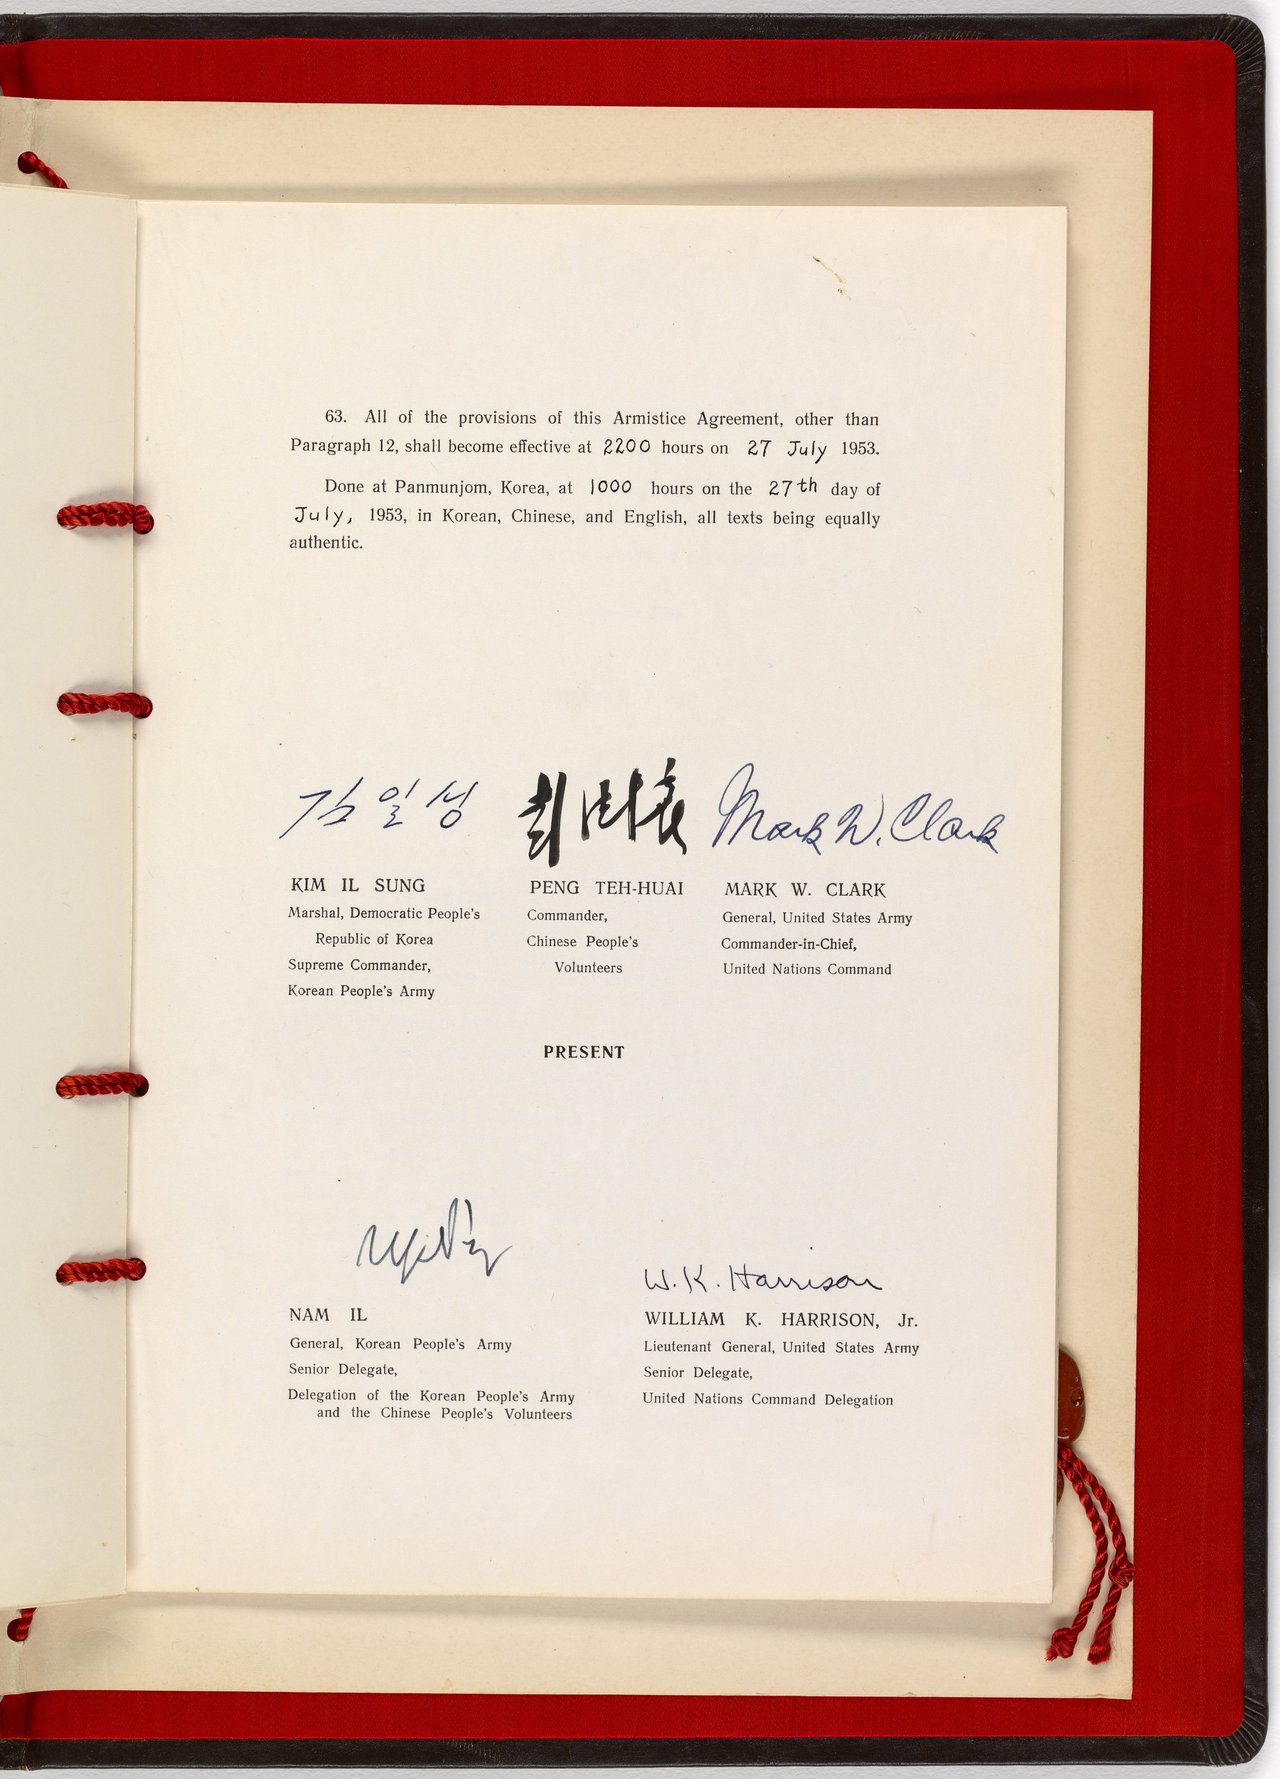 63. All of the provisions of this Armistice Agreement, other than
Paragraph 12, shall become effective at 2200 hours on 27 July 1953.
Done at Panmunjom, Korea, at 1000 hours on the 27th day of
July, 1953, in Korean, Chinese, and English, all texts being equally
authentic.
김일성 彭德懷 Mark W. Clark
KIM IL SUNG PENG TEH-HUAI MARK W. CLARK
Marshal, Democratic People's Commander, General, United States Army
Republic of Korea Chinese People's Commander-in-Chief,
Supreme Commander, Volunteers United Nations Command
Korean People's Army
PRESENT
W. K. Harrison
NAM IL WILLIAM K. HARRISON, Jr.
General, Korean People's Army Lieutenant General, United States Army
Senior Delegate, Senior Delegate,
Delegation of the Korean People's Army United Nations Command Delegation
and the Chinese People's Volunteers